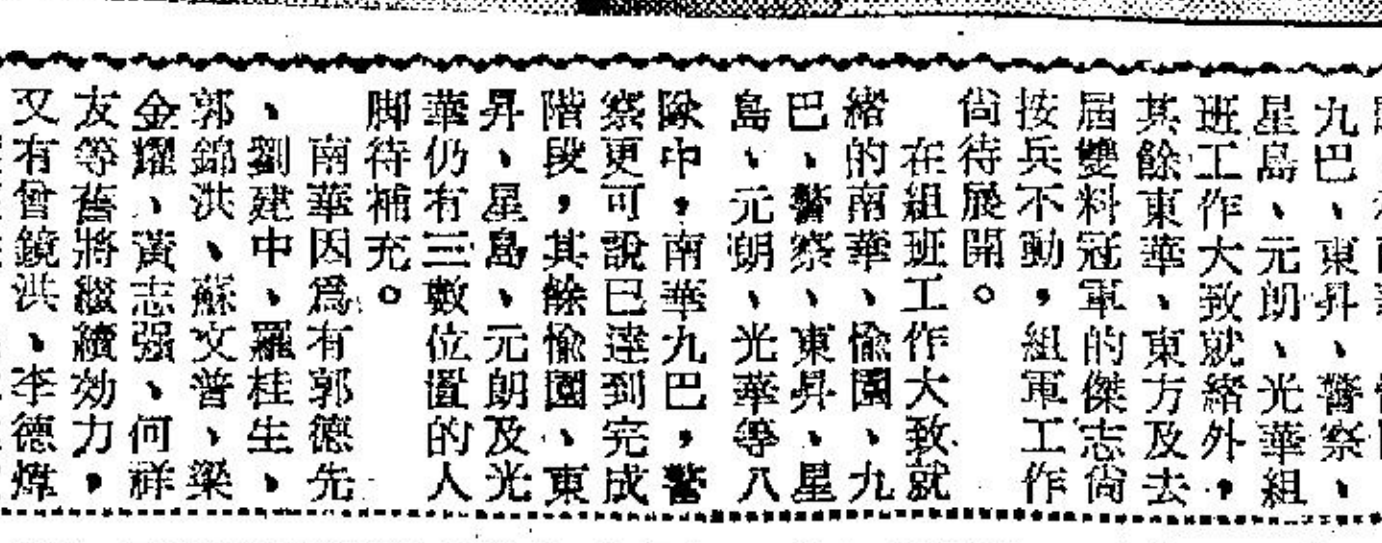 九巴、東昇、警察、
星島、元朗、光華組
班工作大致就緒外，
其餘東華、東方及去
屆雙料冠軍的傑志尙
按兵不動，組軍工作
尙待展開。
在組班工作大致就
緒的南華、愉園、九
巴、警察、東昇、星
島、元朗、光華等八
隊中，南華九巴，警
察更可說已達到完成
階段，其餘愉園、東
昇、星島、元朗及光
華仍有三數位置的人
脚待補充。
南華因爲有郭德先
、劉建中、羅桂生、
郭錦洪、蘇文普、梁
金耀、黃志强、何祥
友等舊將繼續効力，
又有曾鏡洪、李德煇